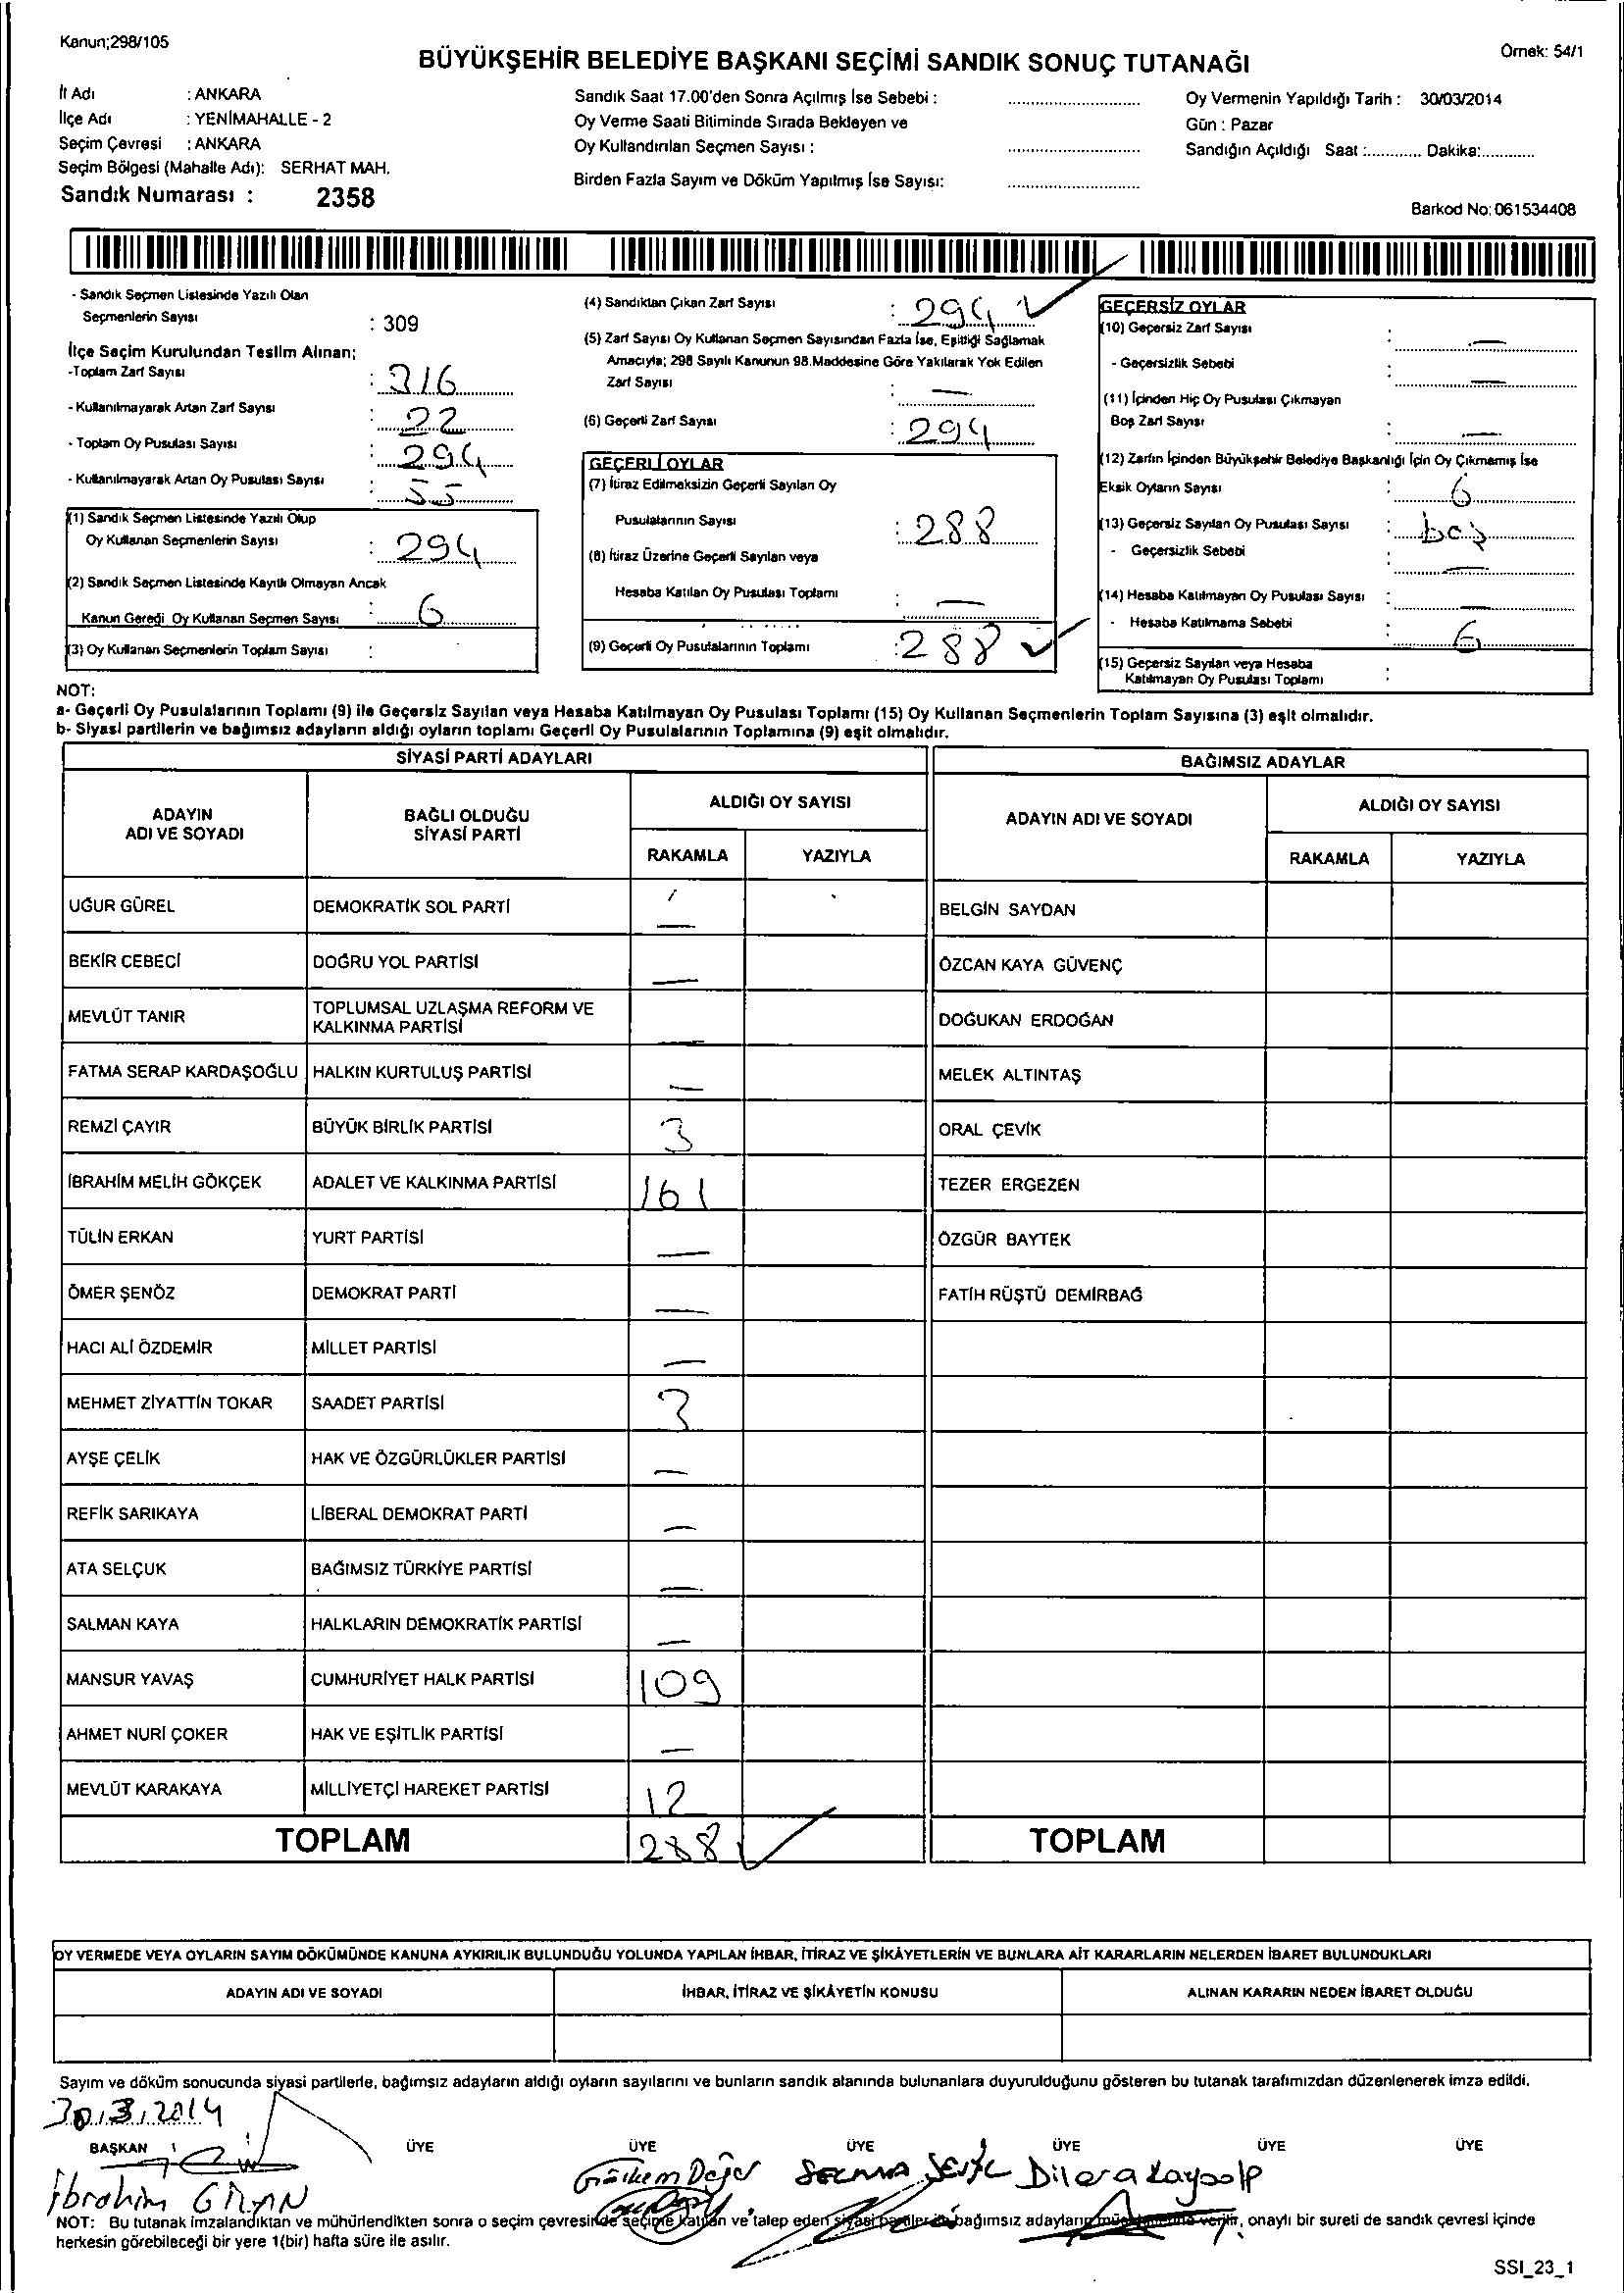 Kanun;298/105
Örnek: 54/1
BÜYÜKŞEHİR BELEDİYE BAŞKANI SEÇİMİ SANDIK SONUÇ TUTANAĞI
İl Adı : ANKARA
İlçe Adı : YENİMAHALLE - 2
Seçim Çevresi : ANKARA
Seçim Bölgesi (Mahalle Adı): SERHAT MAH.
Sandık Numarası : 2358
Sandık Saat 17.00'den Sonra Açılmış İse Sebebi :
Oy Verme Saati Bitiminde Sırada Bekleyen ve
Oy Kullandırılan Seçmen Sayısı :
Birden Fazla Sayım ve Döküm Yapılmış İse Sayısı:
Oy Vermenin Yapıldığı Tarih : 30/03/2014
Gün : Pazar
Sandığın Açıldığı Saat :............ Dakika:............
Barkod No: 061534408
- Sandık Seçmen Listesinde Yazılı Olan
Seçmenlerin Sayısı : 309
İlçe Seçim Kurulundan Teslim Alınan;
-Toplam Zarf Sayısı : 316
- Kullanılmayarak Artan Zarf Sayısı : 22
- Toplam Oy Pusulası Sayısı : 294
- Kullanılmayarak Artan Oy Pusulası Sayısı : 55
(1) Sandık Seçmen Listesinde Yazılı Olup
Oy Kullanan Seçmenlerin Sayısı : 294
(2) Sandık Seçmen Listesinde Kayıtlı Olmayan Ancak
Kanun Gereği Oy Kullanan Seçmen Sayısı : 6
(3) Oy Kullanan Seçmenlerin Toplam Sayısı :
(4) Sandıktan Çıkan Zarf Sayısı : 294
(5) Zarf Sayısı Oy Kullanan Seçmen Sayısından Fazla İse, Eşitliği Sağlamak
Amacıyla; 298 Sayılı Kanunun 98.Maddesine Göre Yakılarak Yok Edilen
Zarf Sayısı : —
(6) Geçerli Zarf Sayısı : 294
GEÇERLİ OYLAR
(7) İtiraz Edilmeksizin Geçerli Sayılan Oy
Pusulalarının Sayısı : 288
(8) İtiraz Üzerine Geçerli Sayılan veya
Hesaba Katılan Oy Pusulası Toplamı : —
(9) Geçerli Oy Pusulalarının Toplamı : 288
GEÇERSİZ OYLAR
(10) Geçersiz Zarf Sayısı : —
- Geçersizlik Sebebi : —
(11) İçinden Hiç Oy Pusulası Çıkmayan
Boş Zarf Sayısı : —
(12) Zarfın İçinden Büyükşehir Belediye Başkanlığı İçin Oy Çıkmamış İse
Eksik Oyların Sayısı : 6
(13) Geçersiz Sayılan Oy Pusulası Sayısı : boş
- Geçersizlik Sebebi : —
(14) Hesaba Katılmayan Oy Pusulası Sayısı : —
- Hesaba Katılmama Sebebi : 6
(15) Geçersiz Sayılan veya Hesaba
Katılmayan Oy Pusulası Toplamı :
NOT:
a- Geçerli Oy Pusulalarının Toplamı (9) ile Geçersiz Sayılan veya Hesaba Katılmayan Oy Pusulası Toplamı (15) Oy Kullanan Seçmenlerin Toplam Sayısına (3) eşit olmalıdır.
b- Siyasi partilerin ve bağımsız adayların aldığı oyların toplamı Geçerli Oy Pusulalarının Toplamına (9) eşit olmalıdır.
SİYASİ PARTİ ADAYLARI
BAĞIMSIZ ADAYLAR
ADAYIN
ADI VE SOYADI
BAĞLI OLDUĞU
SİYASİ PARTİ
ALDIĞI OY SAYISI
RAKAMLA YAZIYLA
ADAYIN ADI VE SOYADI
ALDIĞI OY SAYISI
RAKAMLA YAZIYLA
UĞUR GÜREL DEMOKRATİK SOL PARTİ — BELGİN SAYDAN
BEKİR CEBECİ DOĞRU YOL PARTİSİ — ÖZCAN KAYA GÜVENÇ
MEVLÜT TANIR TOPLUMSAL UZLAŞMA REFORM VE
KALKINMA PARTİSİ — DOĞUKAN ERDOĞAN
FATMA SERAP KARDAŞOĞLU HALKIN KURTULUŞ PARTİSİ — MELEK ALTINTAŞ
REMZİ ÇAYIR BÜYÜK BİRLİK PARTİSİ 3 ORAL ÇEVİK
İBRAHİM MELİH GÖKÇEK ADALET VE KALKINMA PARTİSİ 161 TEZER ERGEZEN
TÜLİN ERKAN YURT PARTİSİ — ÖZGÜR BAYTEK
ÖMER ŞENÖZ DEMOKRAT PARTİ — FATİH RÜŞTÜ DEMİRBAĞ
HACI ALİ ÖZDEMİR MİLLET PARTİSİ —
MEHMET ZİYATTİN TOKAR SAADET PARTİSİ 3
AYŞE ÇELİK HAK VE ÖZGÜRLÜKLER PARTİSİ —
REFİK SARIKAYA LİBERAL DEMOKRAT PARTİ —
ATA SELÇUK BAĞIMSIZ TÜRKİYE PARTİSİ —
SALMAN KAYA HALKLARIN DEMOKRATİK PARTİSİ —
MANSUR YAVAŞ CUMHURİYET HALK PARTİSİ 109
AHMET NURİ ÇOKER HAK VE EŞİTLİK PARTİSİ —
MEVLÜT KARAKAYA MİLLİYETÇİ HAREKET PARTİSİ 12
TOPLAM 288 TOPLAM
OY VERMEDE VEYA OYLARIN SAYIM DÖKÜMÜNDE KANUNA AYKIRILIK BULUNDUĞU YOLUNDA YAPILAN İHBAR, İTİRAZ VE ŞİKÂYETLERİN VE BUNLARA AİT KARARLARIN NELERDEN İBARET BULUNDUKLARI
ADAYIN ADI VE SOYADI İHBAR, İTİRAZ VE ŞİKÂYETİN KONUSU ALINAN KARARIN NEDEN İBARET OLDUĞU
Sayım ve döküm sonucunda siyasi partilerle, bağımsız adayların aldığı oyların sayılarını ve bunların sandık alanında bulunanlara duyurulduğunu gösteren bu tutanak tarafımızdan düzenlenerek imza edildi.
30.3.2014
BAŞKAN ÜYE ÜYE ÜYE ÜYE ÜYE ÜYE
İbrahim Görkem Değer Dilara Kayaalp
NOT: Bu tutanak imzalandıktan ve mühürlendikten sonra o seçim çevresinde seçime katılan ve talep eden siyasi partiler ile bağımsız adayların müşahitlerine verilir, onaylı bir sureti de sandık çevresi içinde
herkesin görebileceği bir yere 1(bir) hafta süre ile asılır.
SSI_23_1